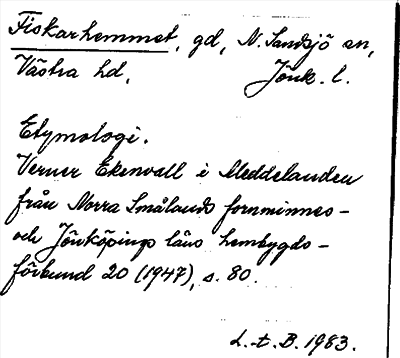 Fiskarhemmet, gd, N. Sandsjö sn,
Västra hd, Jönk. l.
Etymologi.
Verner Ekenvall i Meddelanden
från Norra Smålands fornminnes-
och Jönköpings läns hembygds-
förbund 20 (1947), s. 80.
L.-t. B. 1983.